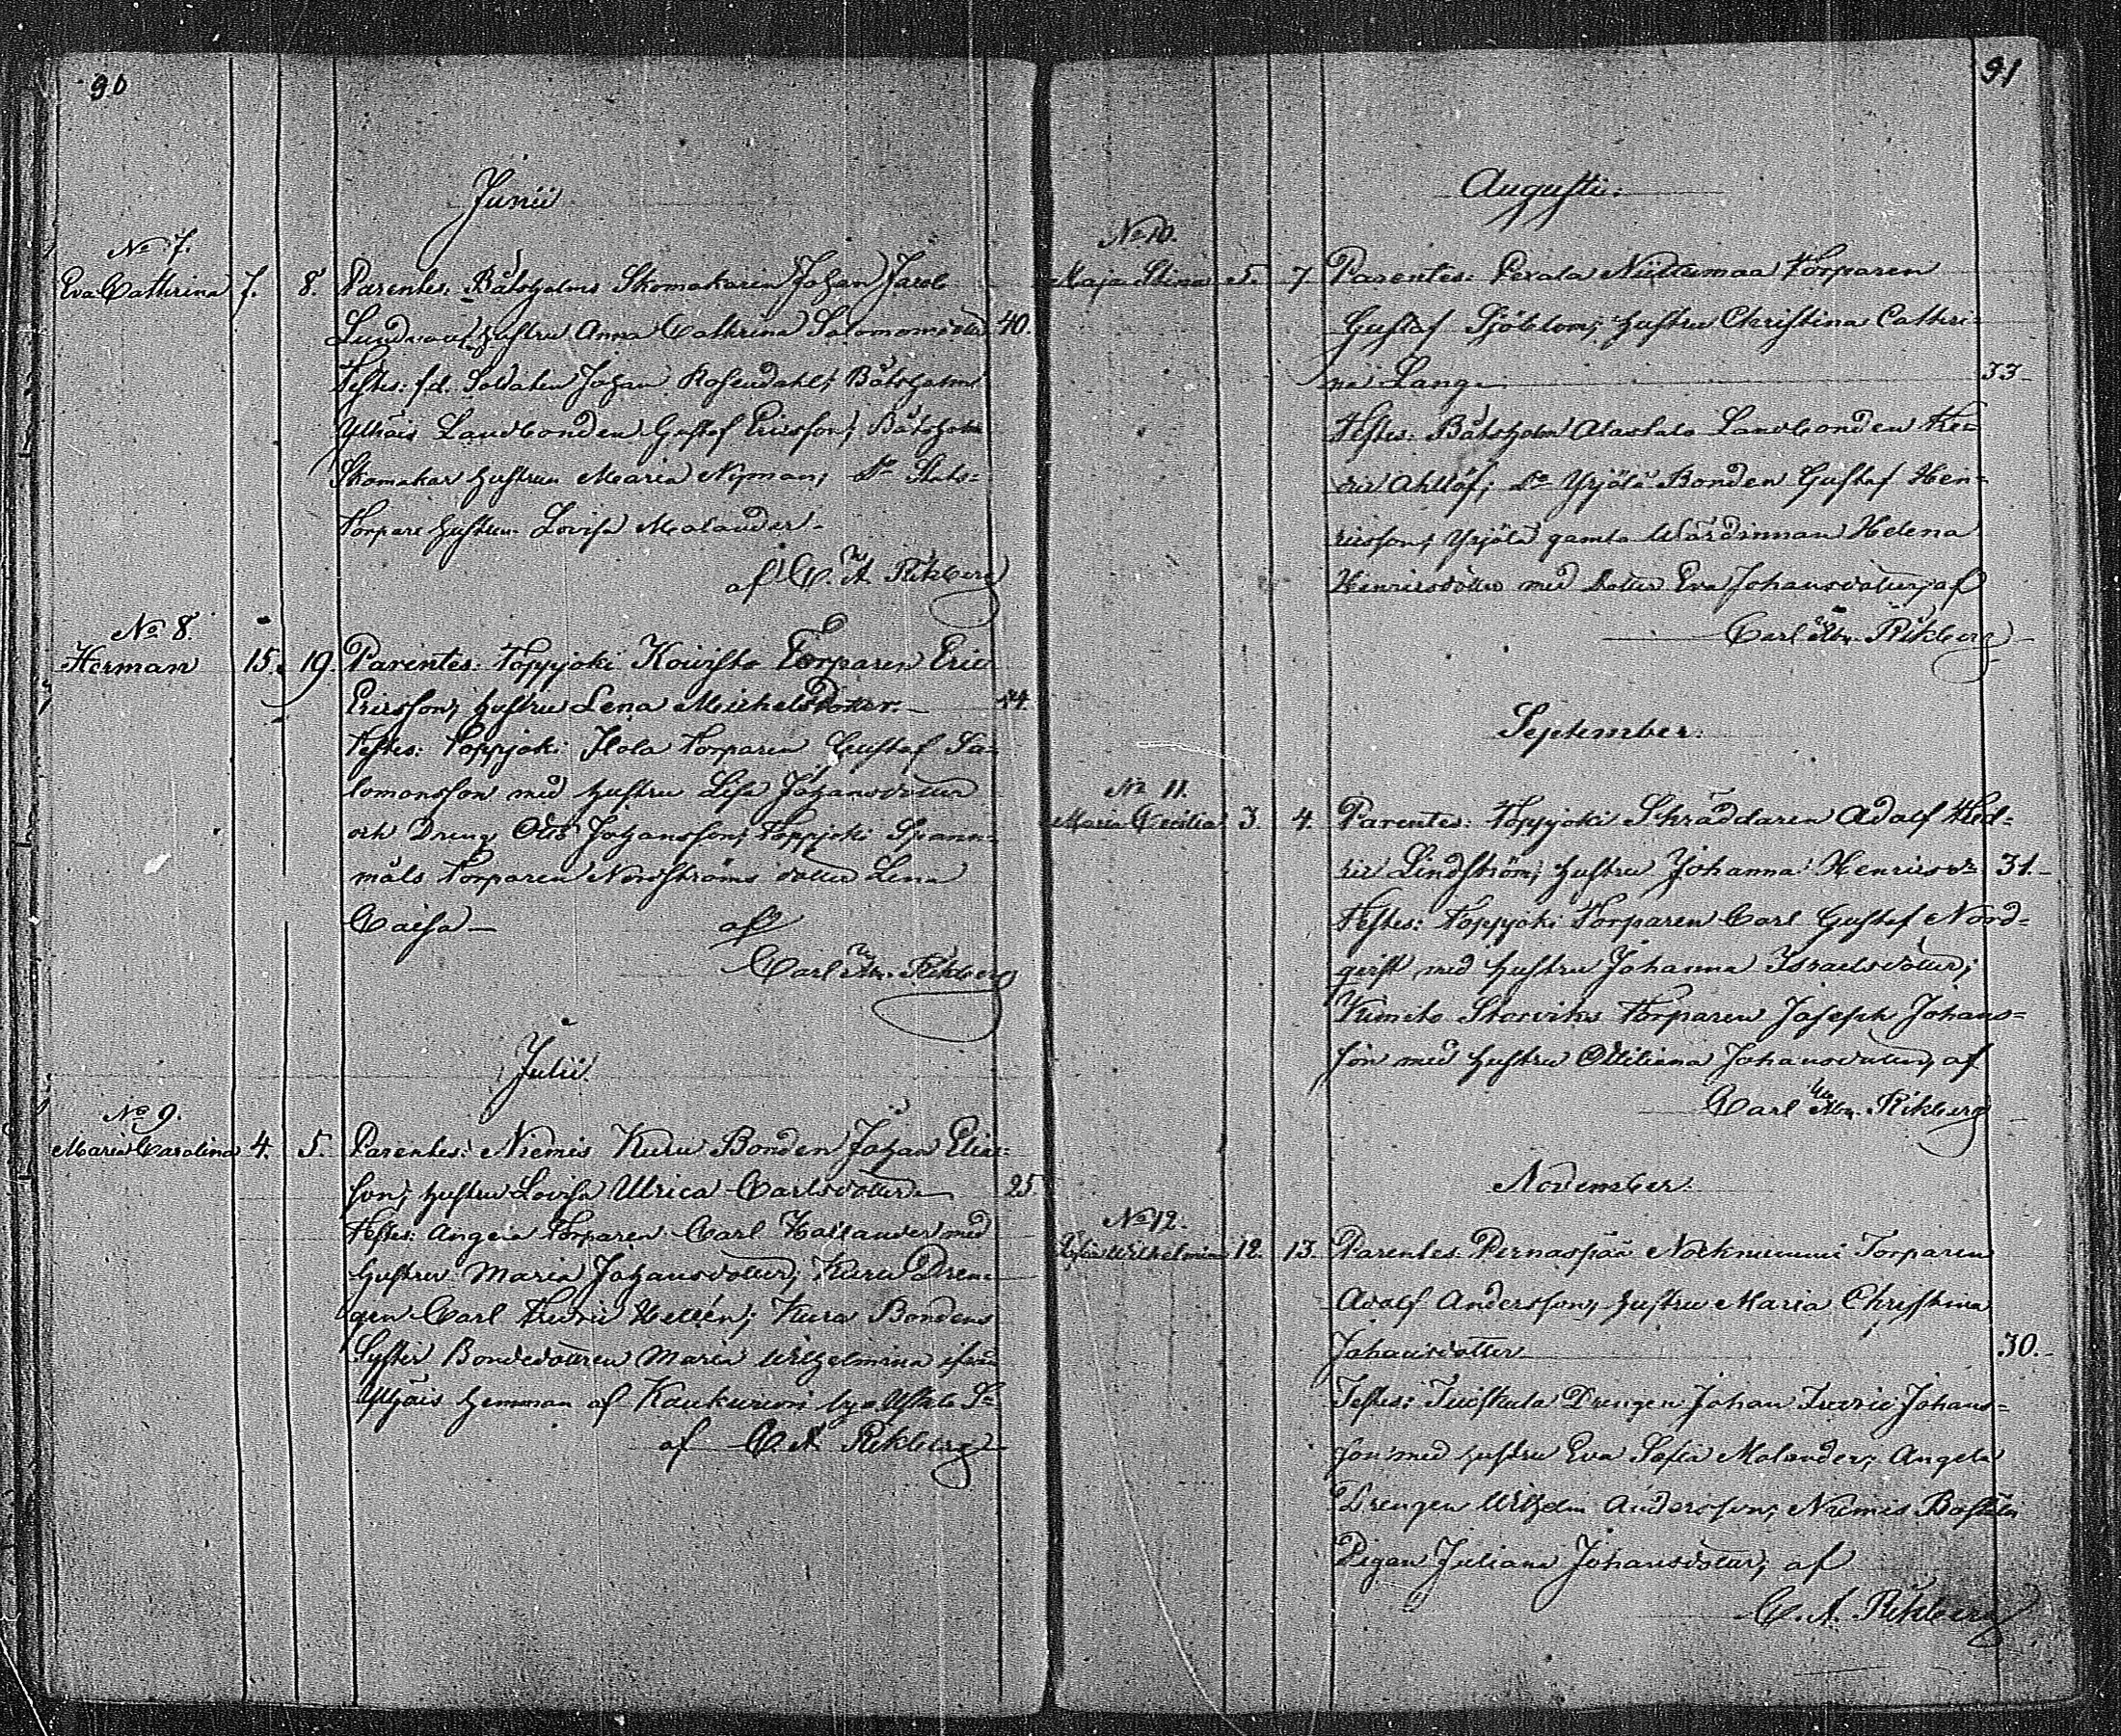 90
Junii
No 7.
Eva Cathrina 7. 8. Parentes: Båtsholms Skomakaren Johan Jacob
hustru Anna Cathrina Salomonsdotter 40.
Testes: f.d. Soldaten Johan Rosendahl; Båtsholms
Yltäis Landbonden Gustaf Ericsson; Båtsholm
Skomakar hustrun Maria Nyman; Do Stats=
Torpare hustrun Lovisa Malander.
af C. A. Rikberg
No 8.
Herman 15. 19. Parentes: Toppjoki Koivisto Torparen Eric
Ericsson; hustru Lena Michelsdotter. 44.
Testes: Toppjoki Torparen Gustaf Sa=
lomonsson med hustru Lisa Johansdotter
och Dreng Otto Johansson; Toppjoki Spann=
måls Torparen Nordströms dotter Lena
Caisa af
Carl Abr. Rikberg
Julii.
No 9.
Maria Carolina 4. 5. Parentes: Niemis Kuru Bonden Johan Elias=
son; hustru Lovisa Ulrica Carlsdotter 25
Testes: Angela Torparen Carl med
hustru Maria Johansdotter; Kuru Dren=
gen Carl Hellén; Kuru Bondens
Syster Bondedottren Maria Wilhelmina ifrån
Yltäis hemman af by
af C. A. Rikberg
91
Augusti.
No 10.
Maja Stina 5. 7. Parentes: Perala Niittumaa Torparen
Gustaf Sjöblom; hustru Christina Cathri=
na Lang 33
Testes: Båtsholm Alastalo Landbonden Fre=
dric Ahllöf; Do Yrjölä Bonden Gustaf Hen=
ricsson; Yrjölä gamla Wärdinnan Helena
Henricsdotter med dotter Eva Johansdotter; af
Carl Abr. Rikberg
September.
No 11.
Maria Cecilia 3. 4. Parentes: Toppjoki Skräddaren Adolf Fred=
ric Lindström; hustru Johanna Henricsdr 31.
Testes: Toppjoki Torparen Carl Gustaf Nord=
qvist med hustru Johanna Israelsdotter;
Kimito Storviks Torparen Joseph Johans=
son med hustru Ottiliana Johansdotter, af
Carl Abr. Rikberg
November.
No 12.
Sofia Wilhelmina 12. 13. Parentes Pernaspää Torparen
Adolf Andersson; hustru Maria Christina
Johansdotter 30.
Testes: Drengen Johan Fredric Johans=
son med hustru Eva Sofia Malander; Angela
Drengen Wilhelm Andersson; Niemis
Pigan Juliana Johansdotter; af
C. A. Rikberg